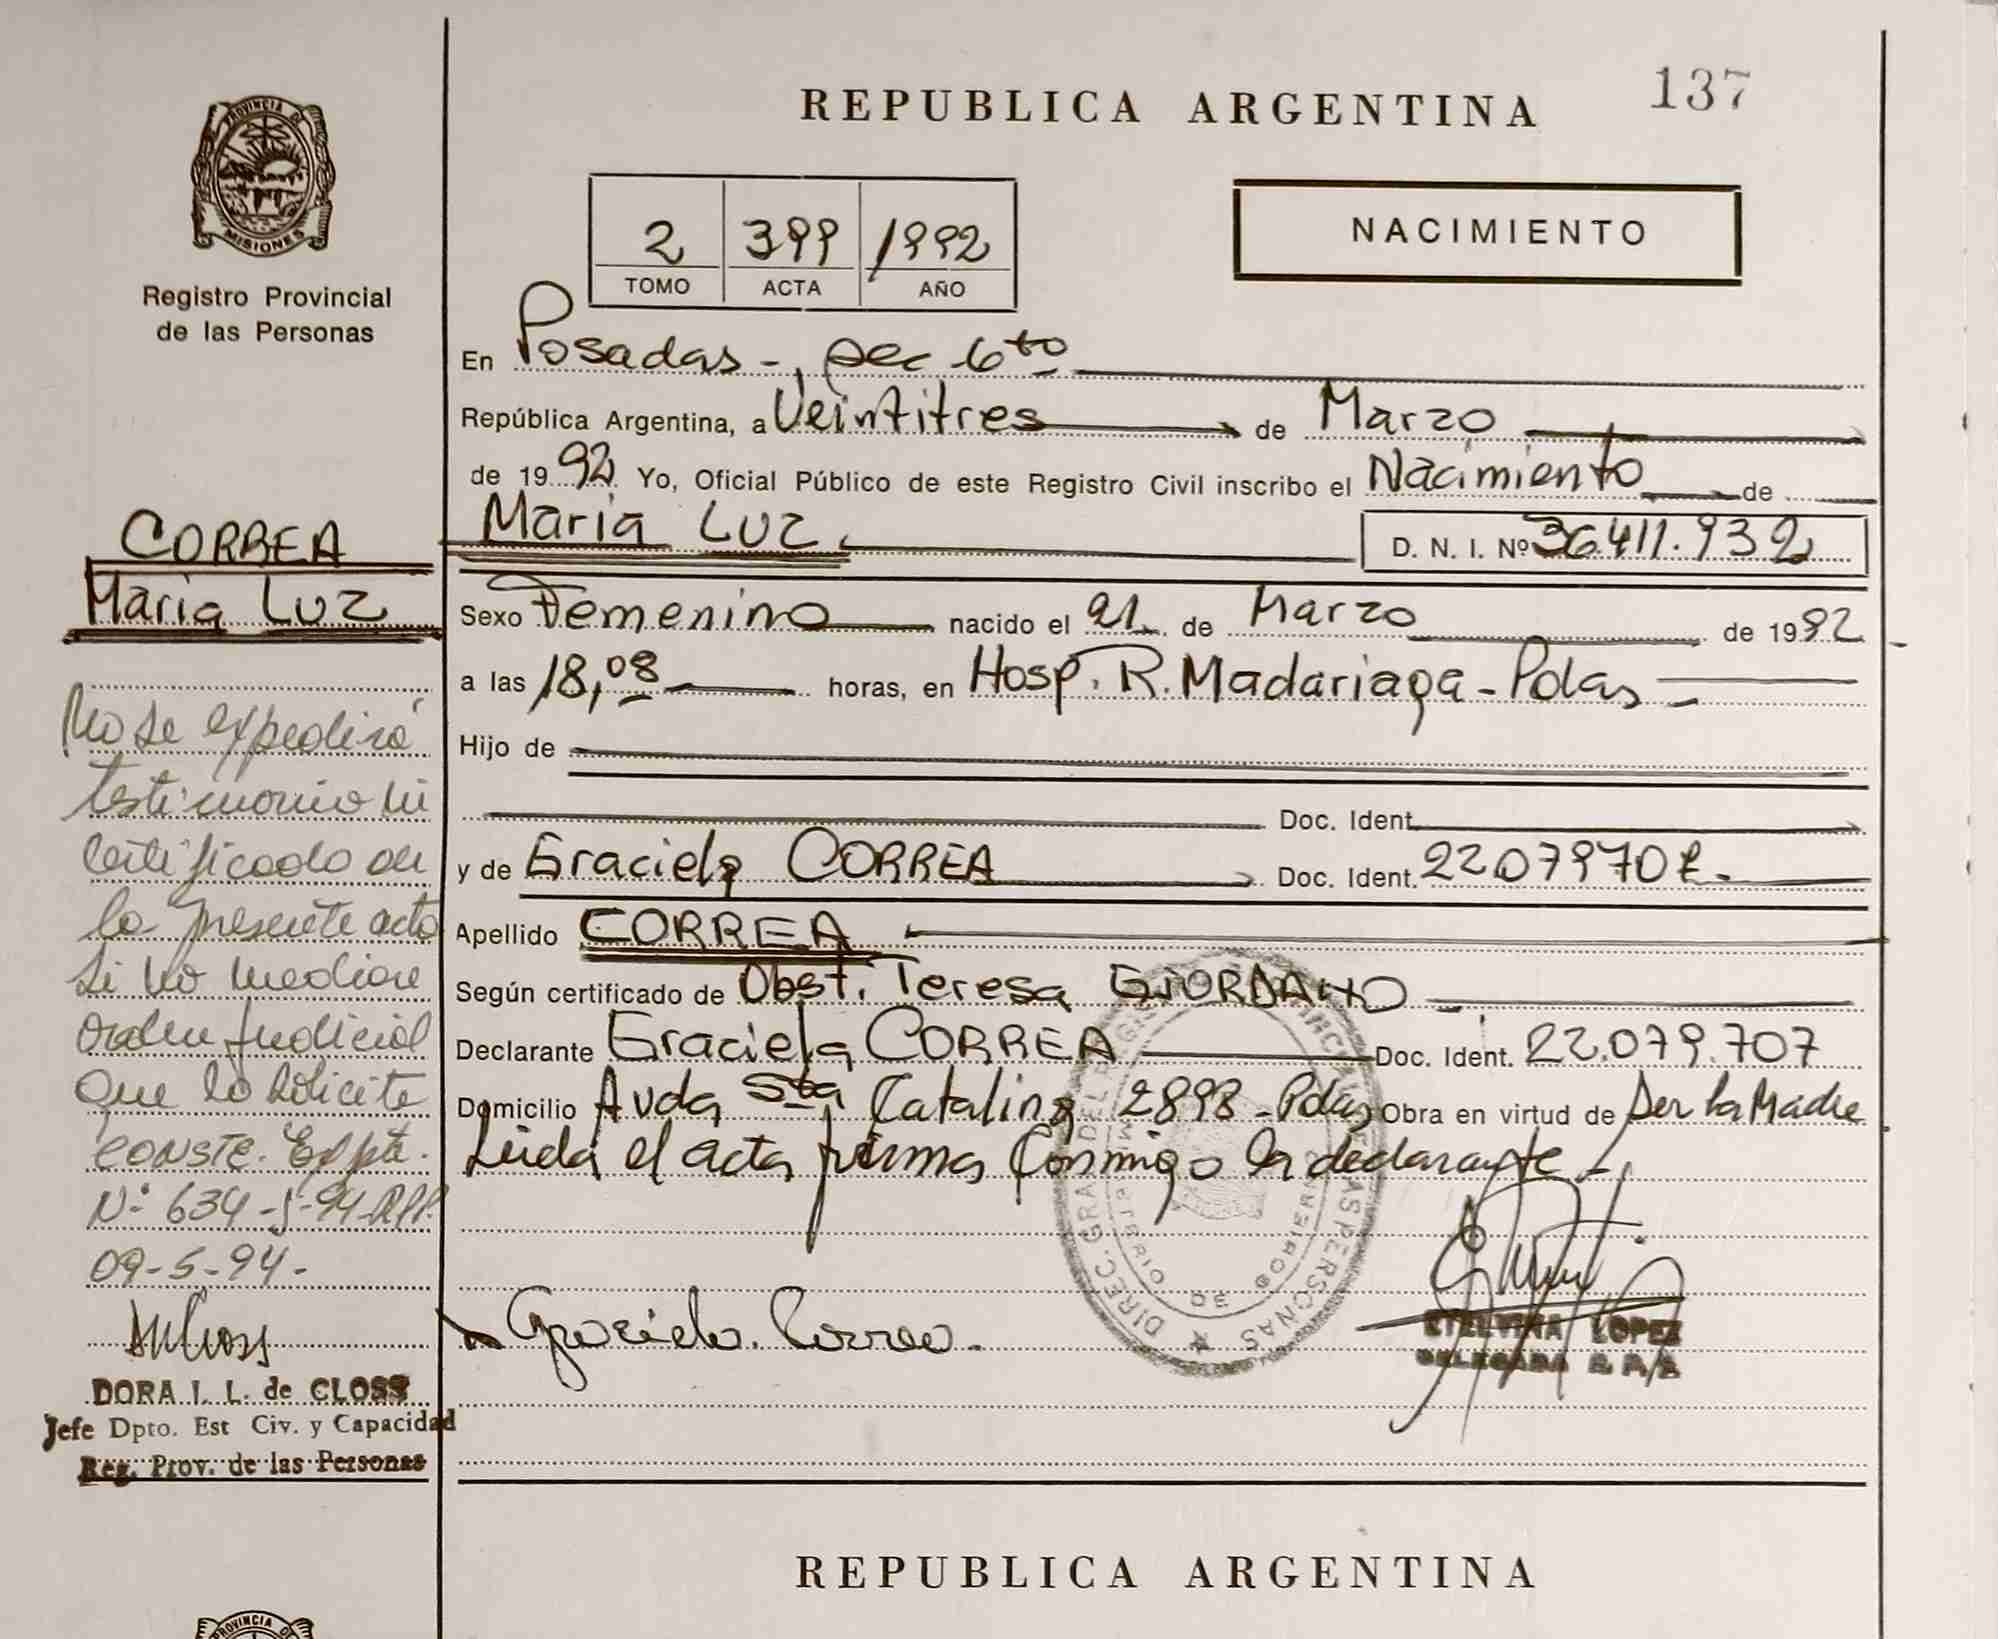 137
REPUBLICA ARGENTINA
PROVINCIA DE
MISIONES
Registro Provincial
de las Personas
2 399 1992
TOMO ACTA AÑO
NACIMIENTO
En Posadas -, sec 6to
República Argentina, a Veintitres de Marzo
de 1992 Yo, Oficial Público de este Registro Civil inscribo el Nacimiento de
María Luz. D. N. I. Nº 36.411.932
Sexo Femenino nacido el 21 de Marzo de 1992
a las 18,08 horas, en Hosp. R. Madariaga - Pdas
Hijo de
Doc. Ident.
y de Graciela CORREA Doc. Ident. 22079707.
Apellido CORREA
Según certificado de Obst. Teresa GIORDANO
Declarante Graciela CORREA Doc. Ident. 22.079.707
Domicilio Avda Sta Catalina 2898 - Pdas Obra en virtud de ser la Madre
Leida el acta firma conmigo la declarante -
Graciela Correa.
ETELVINA LOPEZ
DELEGADA
CORREA
María Luz
No se expedirá
testimonio ni
certificado de
la presente acta
si no mediare
orden judicial
que lo solicite
CONSTE. Expte.
Nº 634-S-94-RPP.
09-5-94-
DORA I. L. de CLOSS
Jefe Dpto. Est Civ. y Capacidad
Reg. Prov. de las Personas
DIREC. GRAL. DEL REGISTRO PROVINCIAL DE LAS PERSONAS
MINISTERIO DE GOBIERNO
REPUBLICA ARGENTINA
PROVINCIA DE